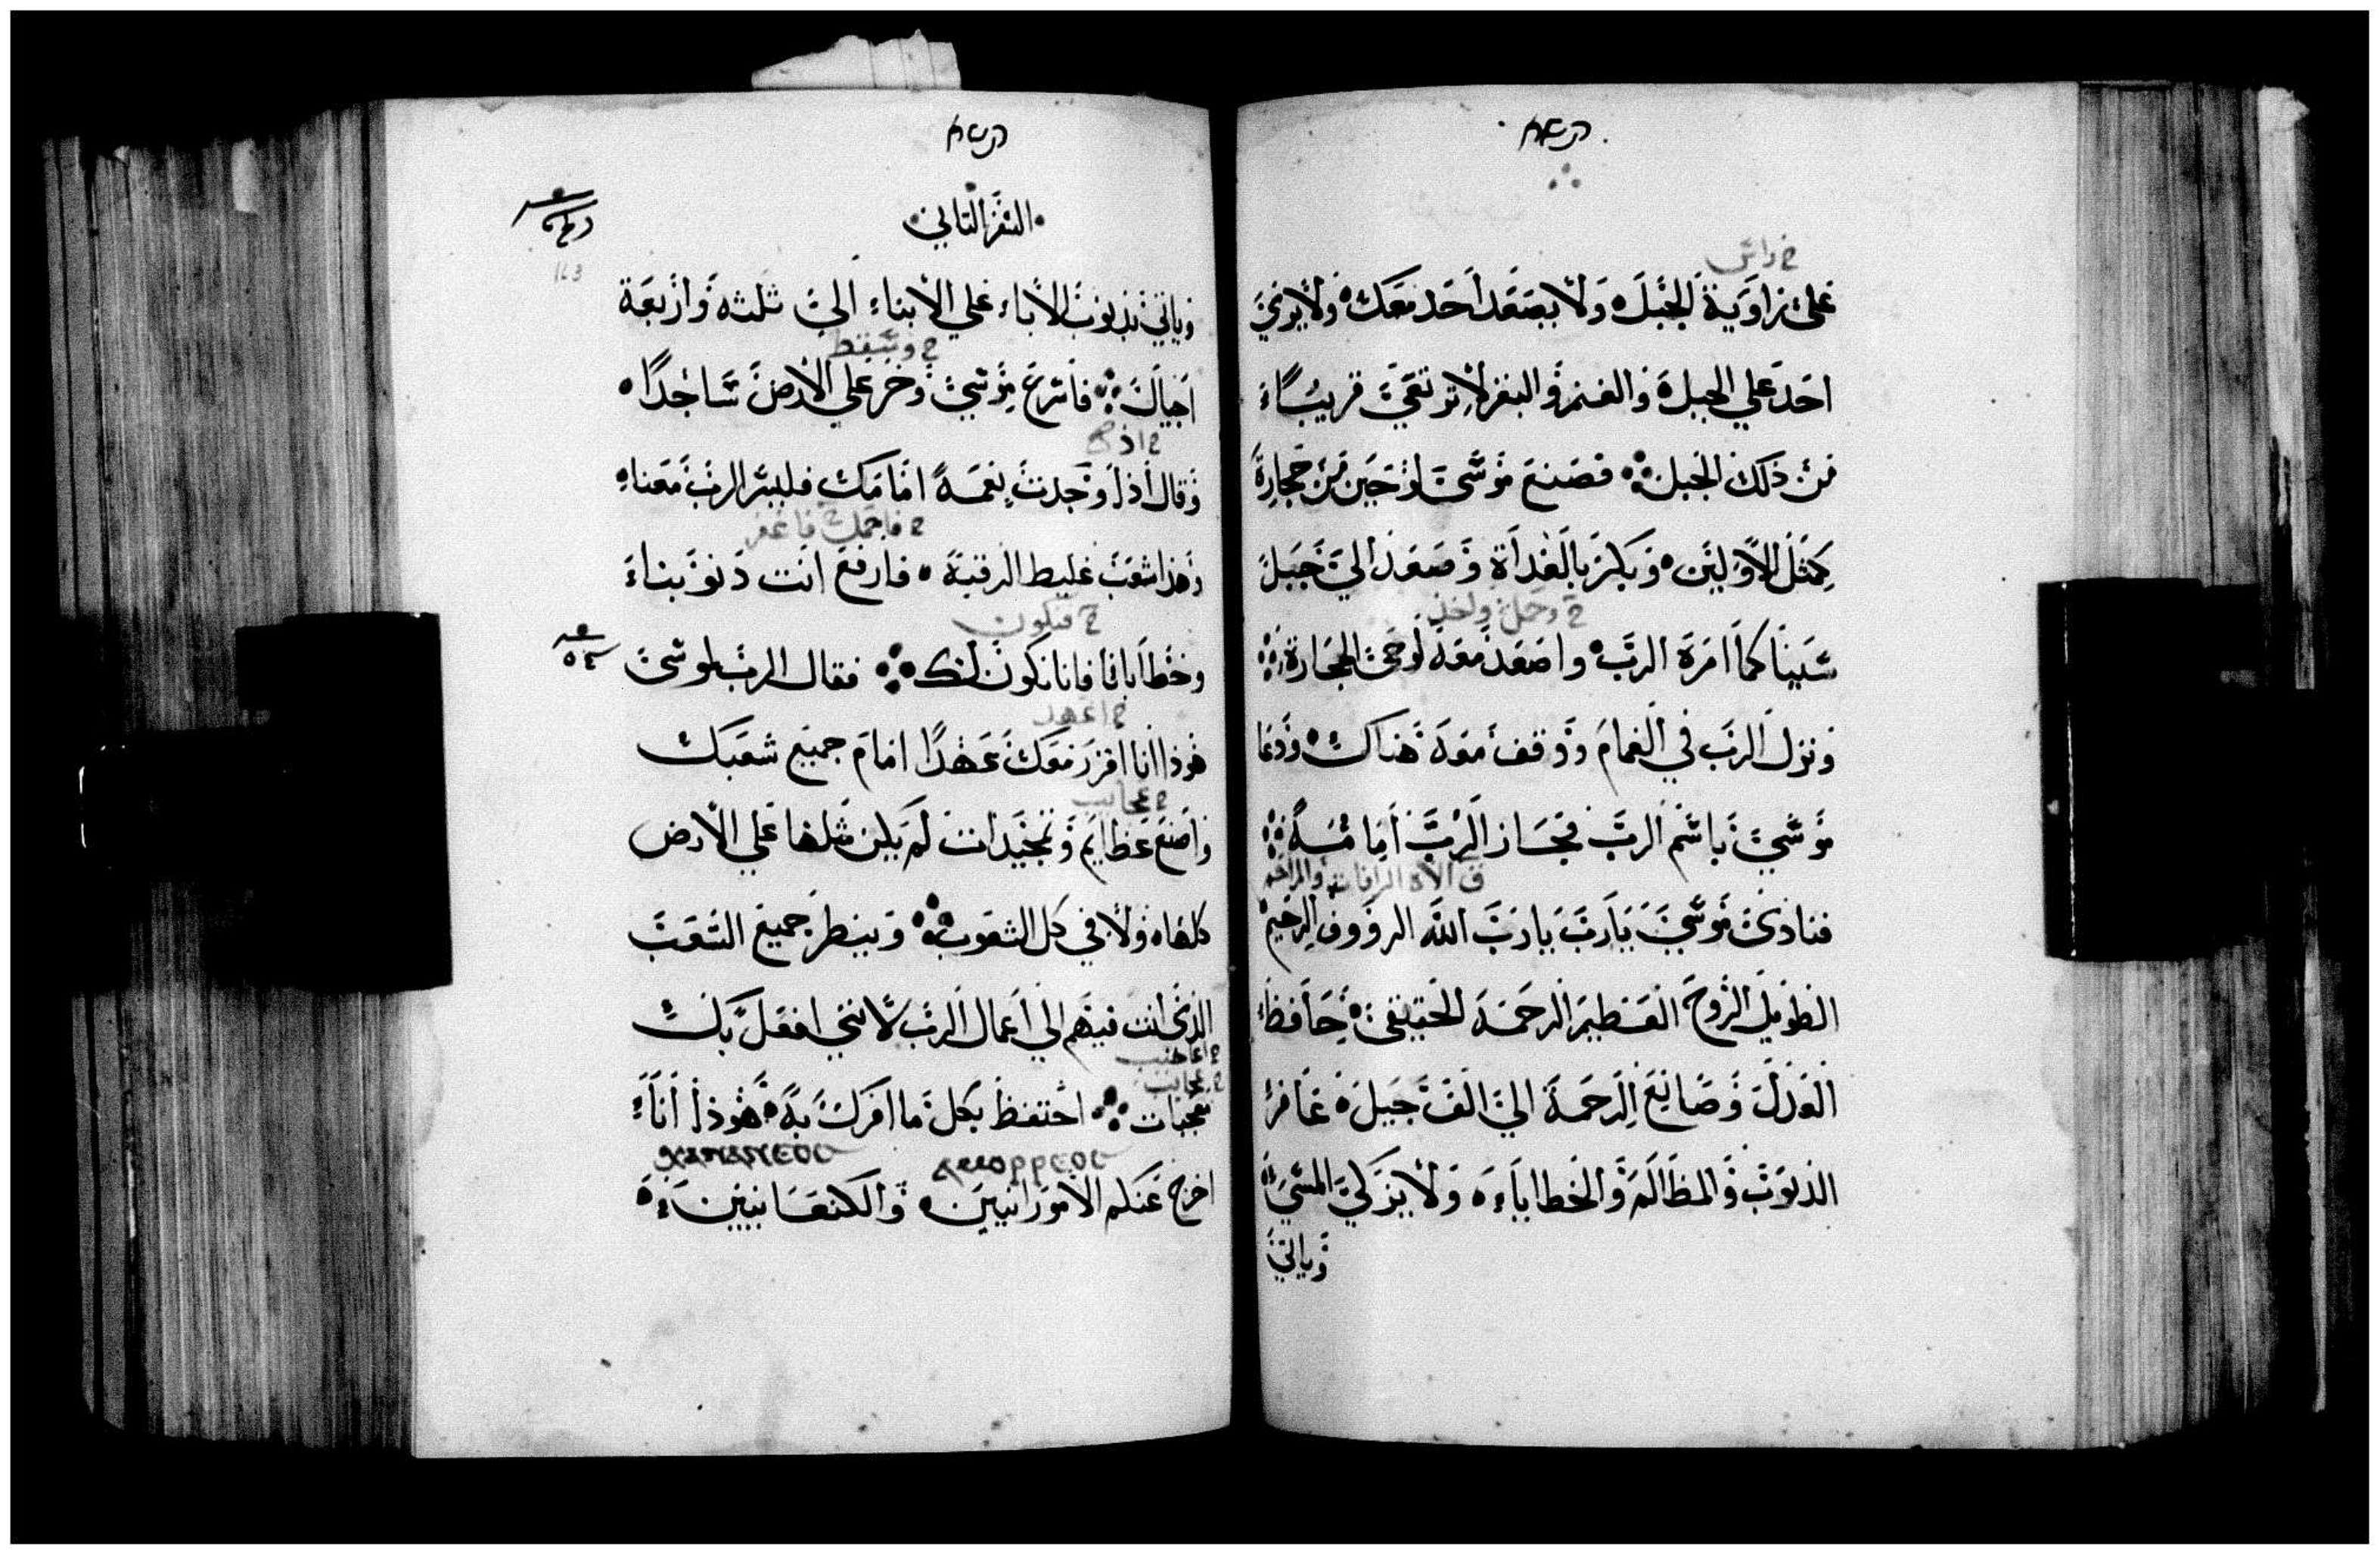 خ راس
على زاوية الجبل ولا يصعد احد معك ولا يري
احد علي الجبل والغنم والبقر لا ترتعي قريبًا
من ذلك الجبل فصنع موسى لوحين من حجارة
كمثل الاولين وبكر بالغداة وصعد الي جبل
خ وحمل واخذ
سينا كما امره الرب واصعد معه لوحى الحجارة
ونزل الرب في الغمام ووقف معه هناك ودعا
موسي باسم الرب فجاز الرب امامه
الاه الرافات والمراحم
فنادى موسي يارب يارب الله الرووف الرحيم
الطويل الروح العظيم الرحمة الحقيقى حافظ
العدل وصانع الرحمة الي الف جيل غافر
الذنوب والمظالم والخطاياء ولا يزكي المسي
وياتي
السفر الثاني
وياتي بذنوب الاباء علي الابناء الي ثلثه واربعة
خ وسقط
اجيال فاسرع موسي وخر علي الارض ساجدًا
خ اذ
وقال اذا وجدت نعمة امامك فليسر الرب معنا
وهذا شعب غليظ الرقبة فارفع انت ذنوبناء
خ فنكون
وخطايانا فانا نكون لك فقال الرب لموسى
خ اعهد
هوذا انا اقرر معك عهدًا امام جميع شعبك
خ عجايب
واصنع عظايم وتمجيدات لم يكن مثلها علي الارض
كلها ولا في كل الشعوب وينظر جميع الشعب
الذى انت فيهم الي اعمال الرب لانني افعل بك
خ عجايب
عجبات احتفظ بكل ما امرك به هوذا انا
ⲁⲙⲟⲣⲣⲉⲟⲥ ⲭⲁⲛⲁⲛⲉⲟⲥ
اخرج عنكم الامورانيين والكنعانيين